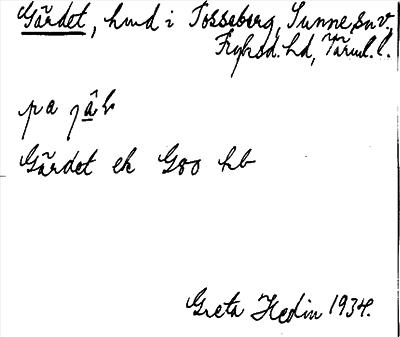 Gärdet, hmd i Tosseberg, Sunne sn v.
Fryksd. hd, Värml. l.
på jâ̱ḷ
Gärdet ek G80 hb
Greta Hedin 1934.